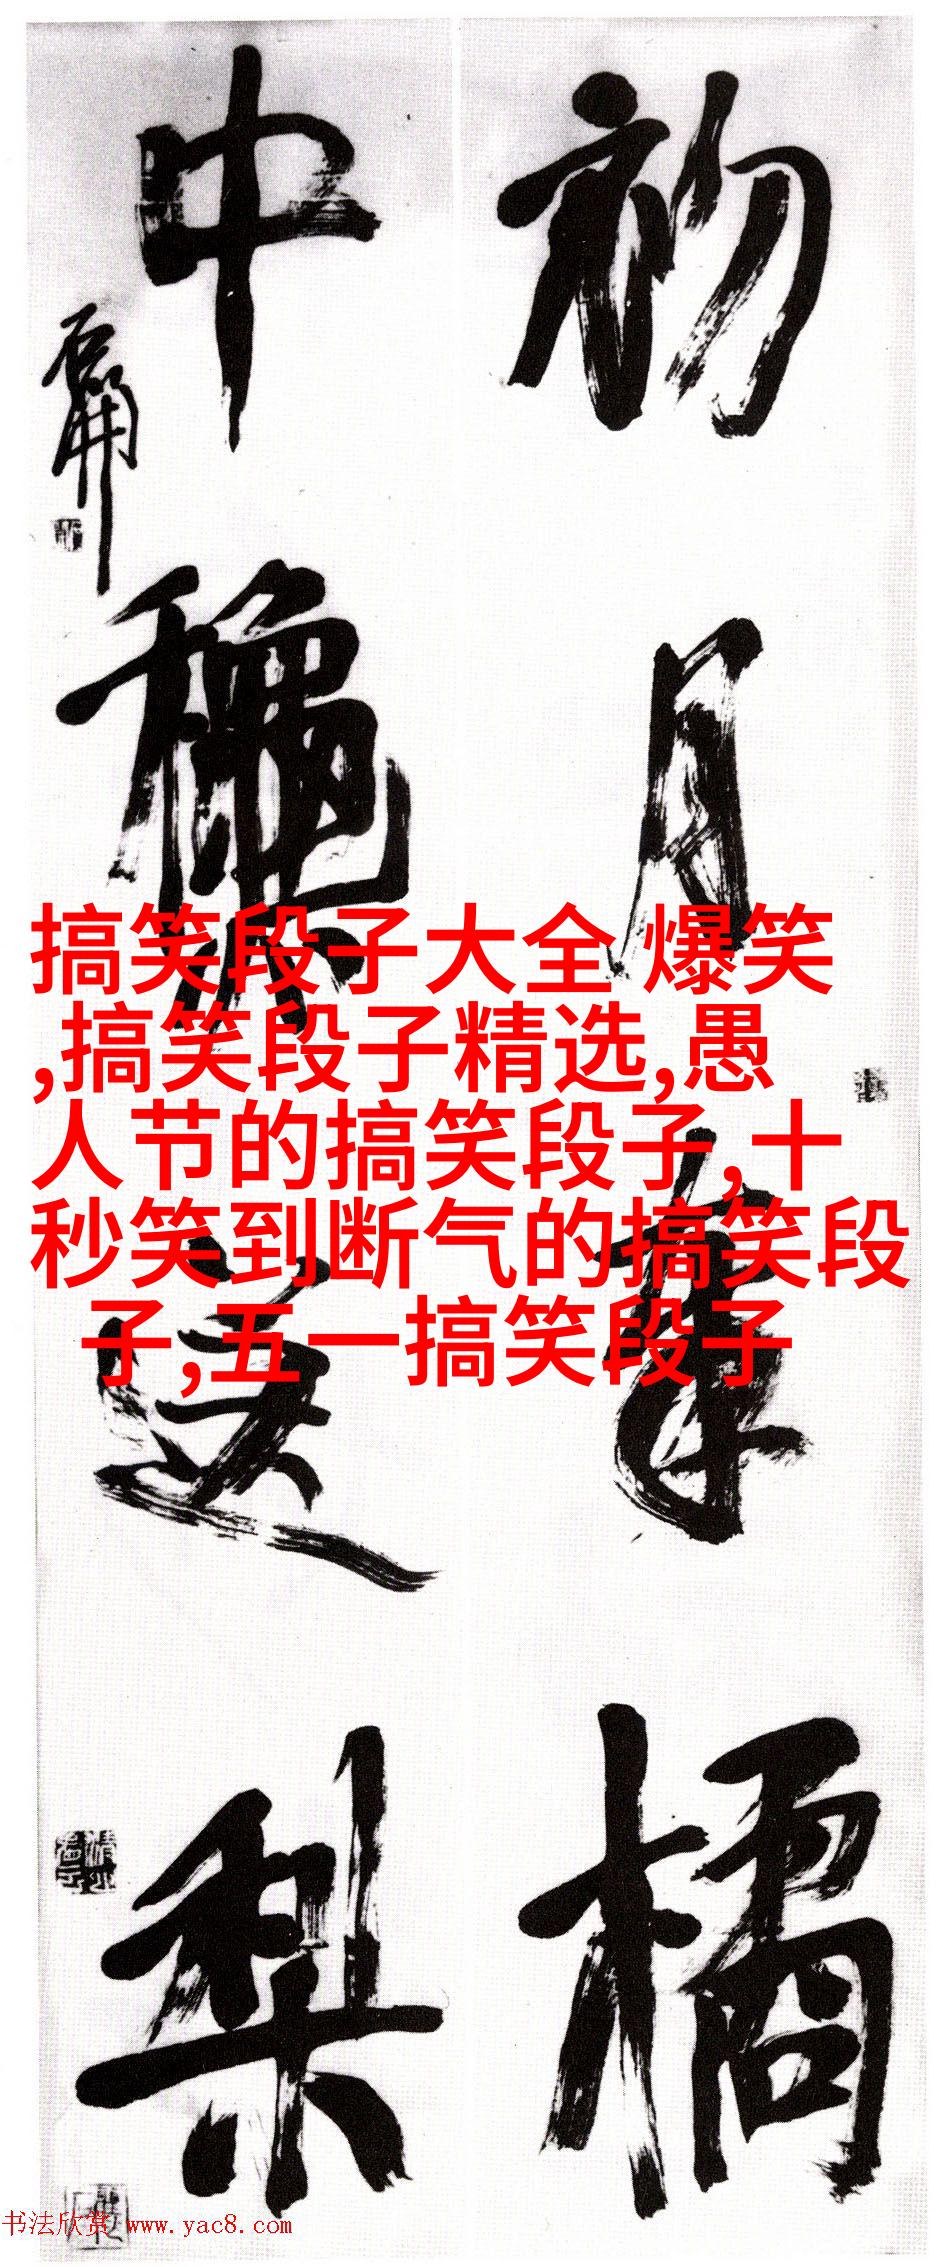 初月橘
中穐送梨
搞笑段子大全 爆笑
,搞笑段子精选,愚
人节的搞笑段子,十
秒笑到断气的搞笑段
子,五一搞笑段子
书法欣赏 www.yac8.com